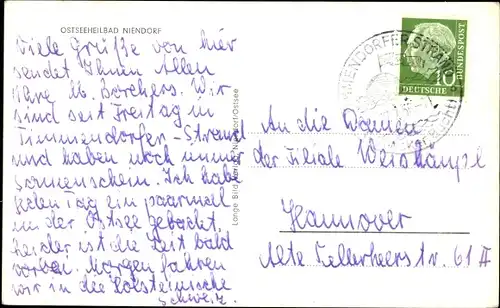 OSTSEEHEILBAD NIENDORF
Viele Grüße von hier
sendet Ihnen Allen
Ihre M. Borchers. Wir
sind seit Freitag in
Timmendorfer-Strand
und haben noch immer
Sonnenschein. Ich habe
jeden Tag ein paarmal
in der Ostsee gebadet.
Leider ist die Zeit bald
vorbei. Morgen fahren
wir in die Holsteinische
Schweiz.
Niendorf/Ostsee
TIMMENDORFER STRAND
10
DEUTSCHE BUNDESPOST
An die Damen
der Filiale Weishäupl
Hannover
Alte Cellerheerstr. 61 II